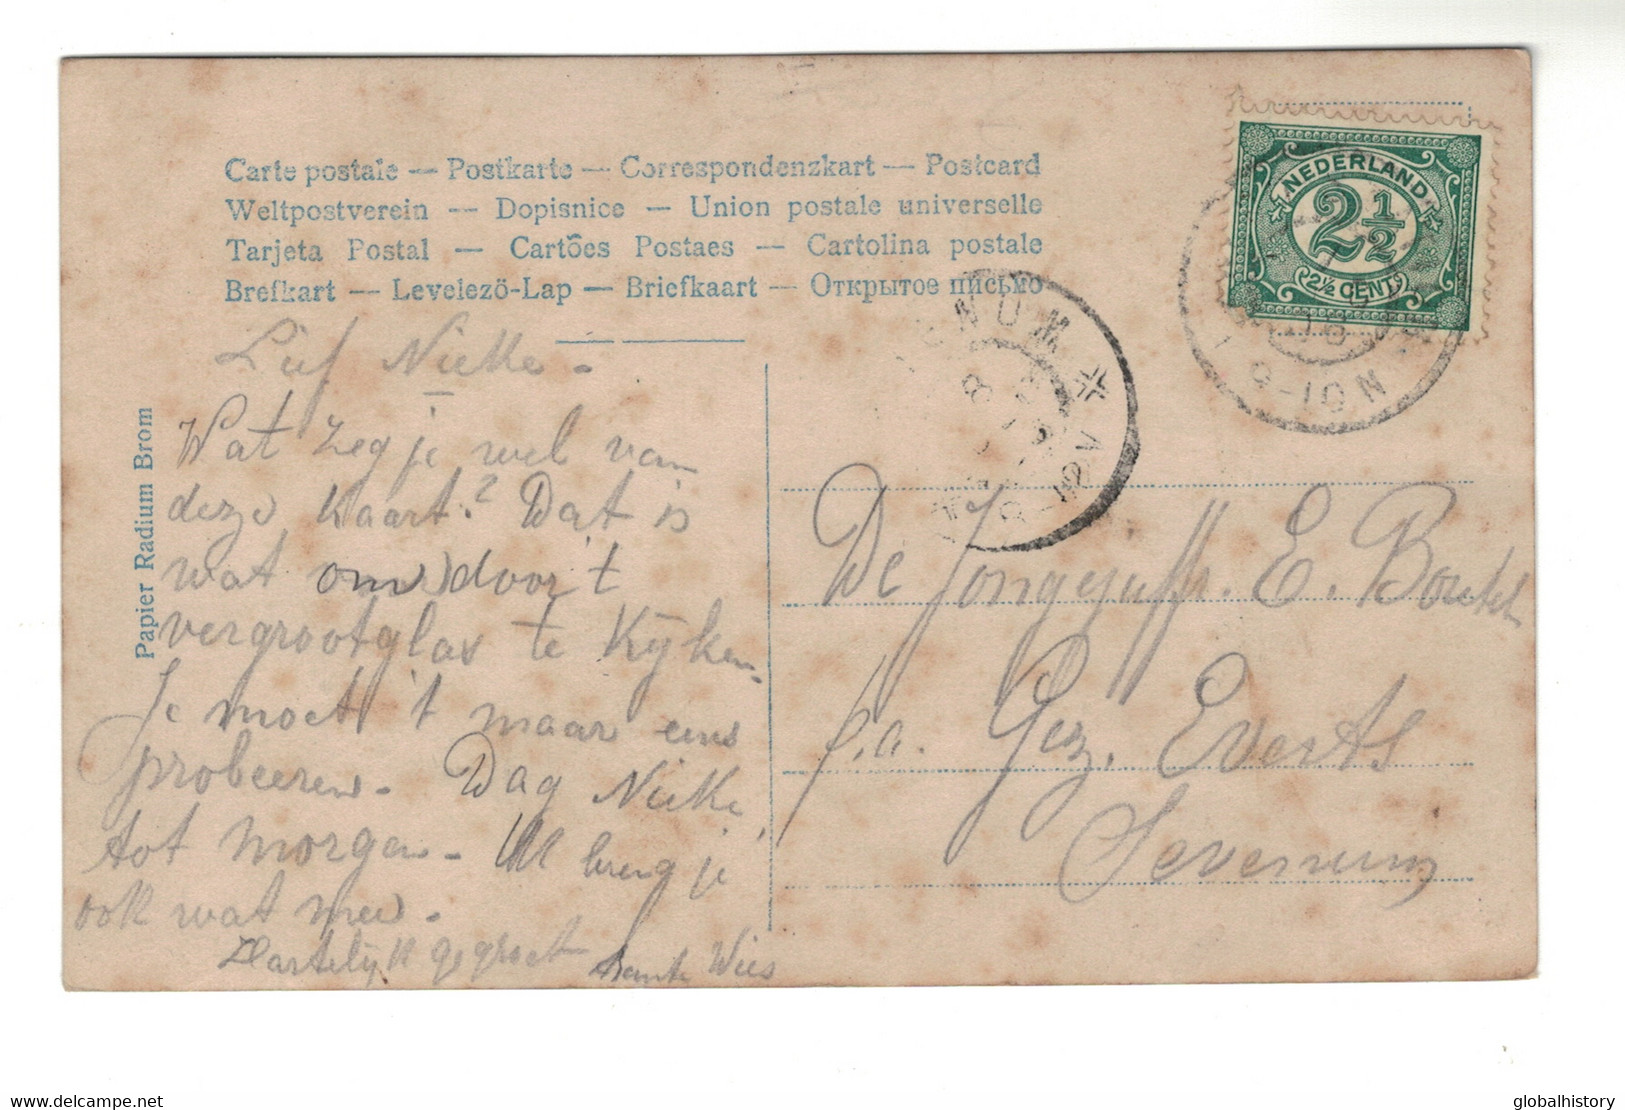 Carte postale — Postkarte — Correspondenzkart — Postcard
Weltpostverein — Dopisnice — Union postale universelle
Tarjeta Postal — Cartões Postaes — Cartolina postale
Brefkart — Levelezö-Lap — Briefkaart — Открытое письмо
Papier Radium Brom
NEDERLAND
2½
2½ CENT
9-10N
Lief Niekke.
Wat zeg je wel van
deze kaart? Dat is
wat om door 't
vergrootglas te kijken.
Je moet 't maar eens
probeeren. Dag Niekke,
tot morgen. Ik breng je
ook wat mee.
Hartelijk gegroet tante Wies
De Jongejuffr. E.
f.a. Gez. Everts
Sevenum
delcampe.net
globalhistory